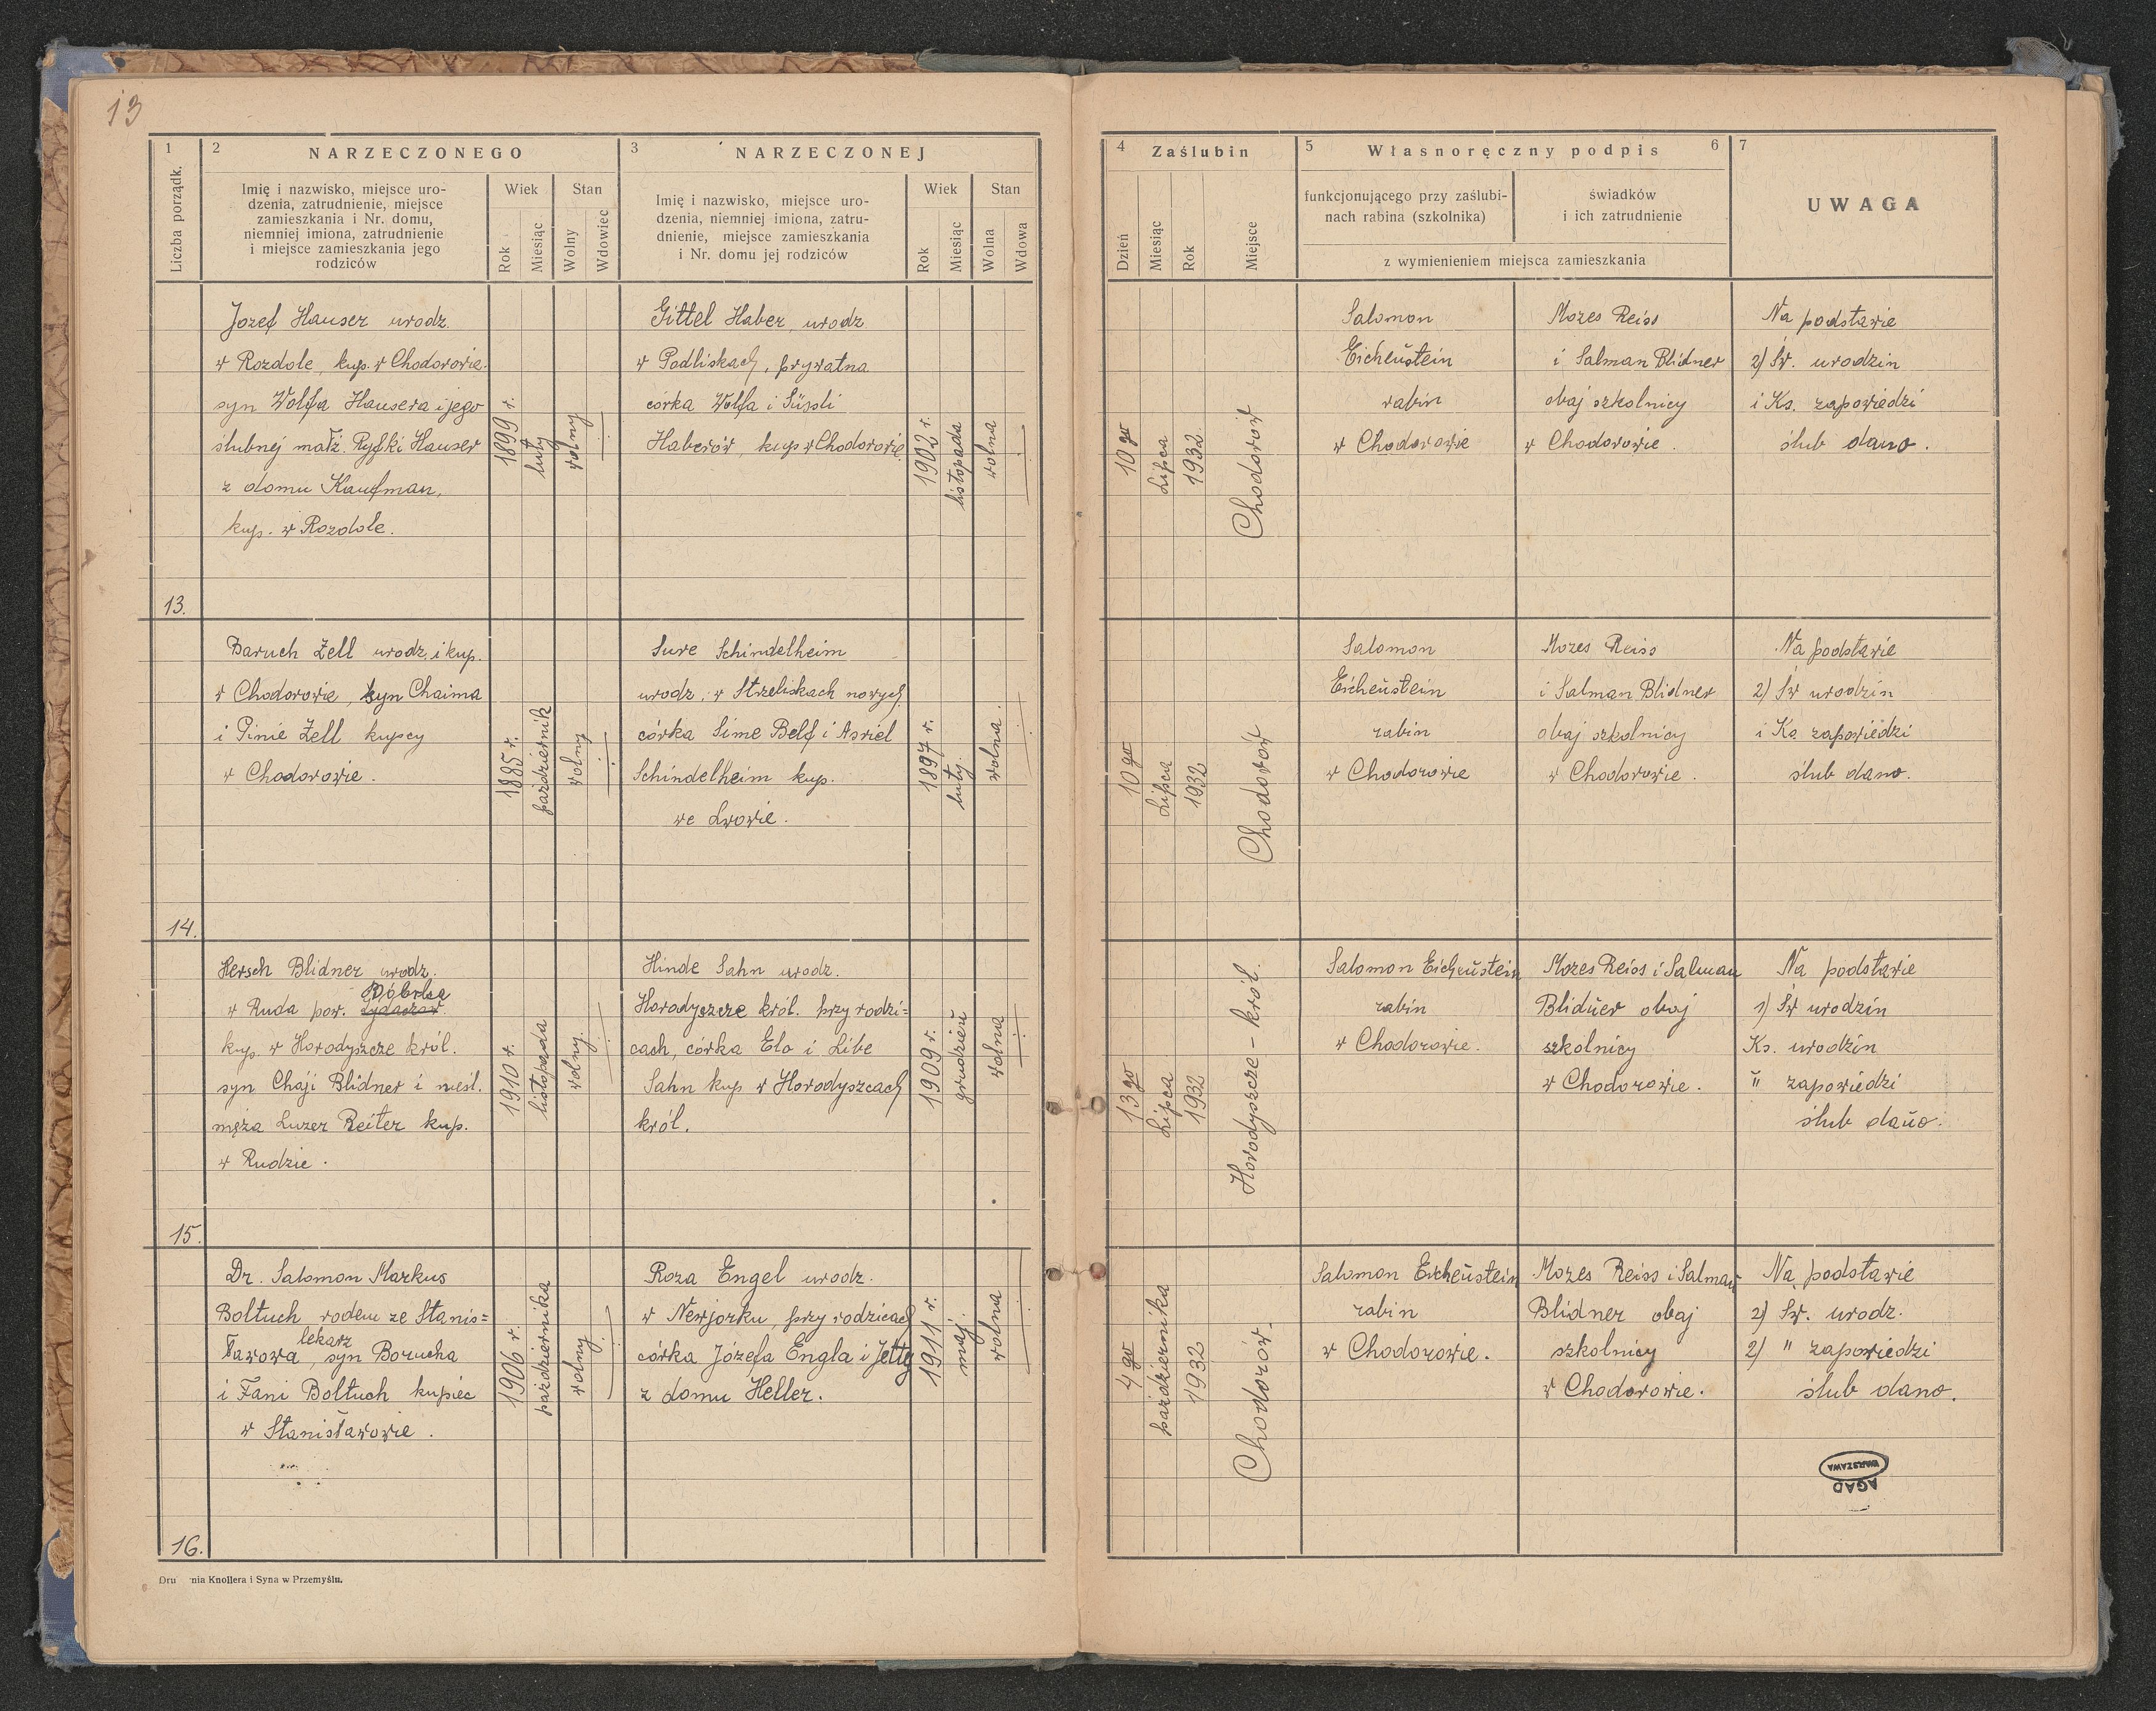 13
1
Liczba porządk.
2
NARZECZONEGO
Imię i nazwisko, miejsce uro-
dzenia, zatrudnienie, miejsce
zamieszkania i Nr. domu,
niemniej imiona, zatrudnienie
i miejsce zamieszkania jego
rodziców
Wiek
Rok
Miesiąc
Stan
Wolny
Wdowiec
3
NARZECZONEJ
Imię i nazwisko, miejsce uro-
dzenia, niemniej imiona, zatru-
dnienie, miejsce zamieszkania
i Nr. domu jej rodziców
Wiek
Rok
Miesiąc
Stan
Wolna
Wdowa
4
Zaślubin
Dzień
Miesiąc
Rok
Miejsce
5
Własnoręczny podpis
6
funkcjonującego przy zaślubi-
nach rabina (szkolnika)
świadków
i ich zatrudnienie
z wymienieniem miejsca zamieszkania
7
UWAGA
13.
Jozef Hauser urodz.
w Rozdole, kup. w Chodorowie.
syn Wolfa Hausera i jego
ślubnej małż. Ryfki Hauser
z domu Kaufman,
kup. w Rozdole.
1899 r.
luty
wolny
Gittel Haber, urodz
w Podliskach, prywatna
córka Wolfa i Süssli
Haberów, kup. w Chodorowie.
1902 r.
listopada
wolna
10 go
Lipca
1932
Chodorów
Salomon
Eichenstein
rabin
w Chodorowie
Mozes Reiss
i Salman Blidner
obaj szkolnicy
w Chodorowie.
Na podstawie
2) Św. urodzin
i Ks. zapowiedzi
ślub dano.
14.
Baruch Zell urodz. i kup.
w Chodorowie, syn Chaima
i Pinie Zell kupcy
w Chodorowie.
1885 r.
październik
wolny
Sure Schindelheim
urodz. w Strzeliskach nowych
córka Sime Belf i Asriel
Schindelheim kup.
we Lwowie.
1897 r.
luty.
wolna.
10 go
Lipca
1932
Chodorów
Salomon
Eichenstein
rabin
w Chodorowie
Mozes Reiss
i Salman Blidner
obaj szkolnicy
w Chodorowie.
Na podstawie
2) Św urodzin
i Ks. zapowiedzi
ślub dano.
15.
Hersch Blidner urodz.
Bóbrka
w Ruda pow. Żydaczow.
kup. w Horodyszcze król.
syn Chaji Blidner i nieśl.
męża Luzer Reiter kup.
w Rudzie.
1910 r.
listopada
wolny.
Hinde Sahn urodz.
Horodyszcze król. przy rodzi=
cach, córka Elo i Libe
Sahn kup w Horodyszcach
król.
1909 r.
grudzień
wolna
13 go
Lipca
1932
Horodyszcze - król.
Salomon Eichenstein
rabin
w Chodorowie.
Mozes Reiss i Salman
Blidner obaj
szkolnicy
w Chodorowie.
Na podstawie
1) Św urodzin
Ks. urodzin
" zapowiedzi
ślub dano.
16.
Dr. Salomon Markus
Boltuch rodem ze Stanis=
lekarz
ławowa, syn Borucha
i Fani Boltuch kupiec
w Stanisławowie.
1906 r.
października
wolny
Roza Engel urodz.
w Newjorku, przy rodzicach
córka Józefa Engla i Jetty
z domu Heller.
1911 r.
maj.
wolna
4 go
października
1932
Chodorow.
Salomon Eichenstein
rabin
w Chodorowie.
Mozes Reiss i Salman
Blidner obaj
szkolnicy
w Chodorowie.
Na podstawie
2) Św. urodz.
2) " zapowiedzi
ślub dano.
WARSZAWA
AGAD
Dru nia Knollera i Syna w Przemyślu.